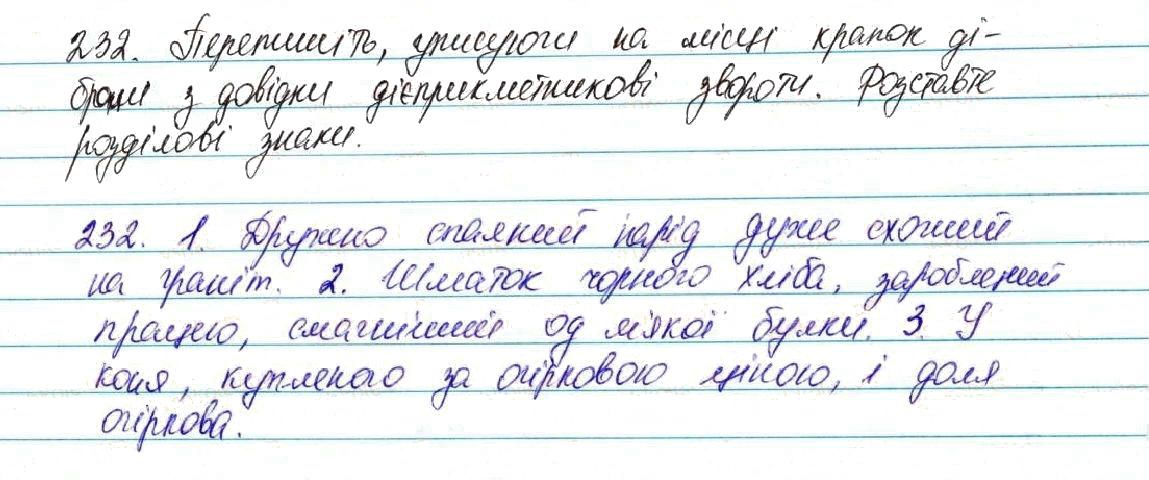 232. Перепишіть, уписуючи на місці крапок ді-
брані з довідки дієприкметникові звороти. Розставте
розділові знаки.
232. 1. Дружно спаяний нарід дуже схожий
на граніт. 2. Шматок чорного хліба, зароблений
працею, смачніший од м'якої булки. 3. У
коня, купленого за огірковою ціною, і доля
огіркова.